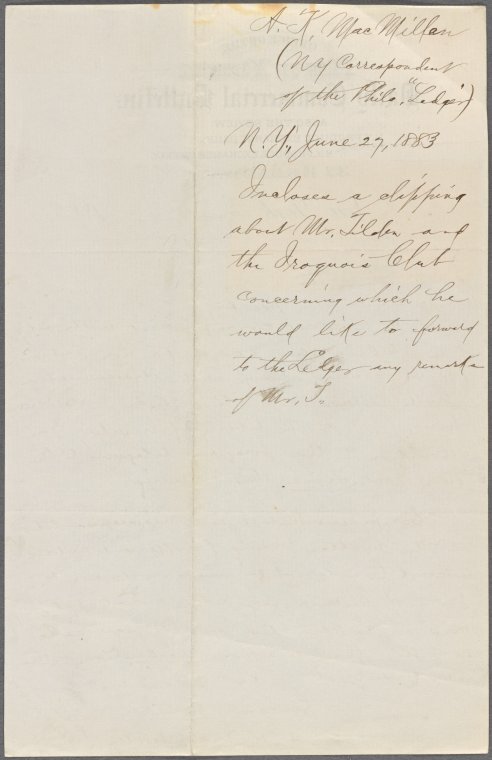 A. K. MacMillan
(NY Correspondent
of the Phila. "Ledger")
N.Y., June 27, 1883
Incloses a clipping
about Mr. Tilden and
the Iroquois Club
concerning which he
would like to forward
to the Ledger any remarks
of Mr. T.